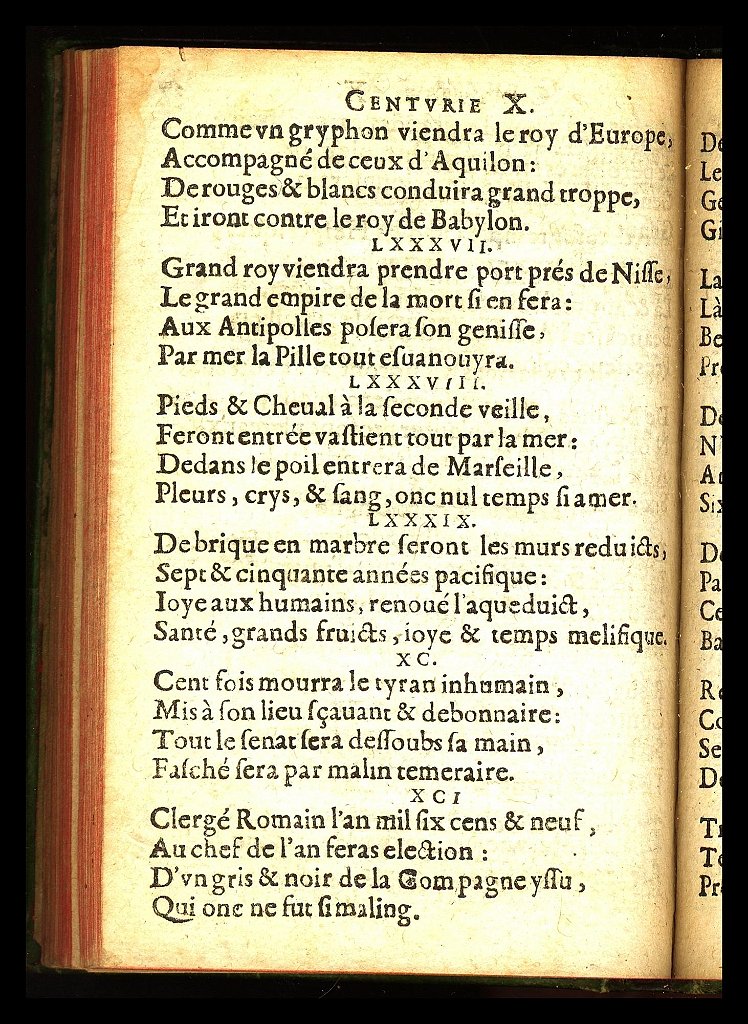 CENTVRIE X.
Comme vn gryphon viendra le roy d'Europe,
Accompagné de ceux d'Aquilon:
De rouges & blancs conduira grand troppe,
Et iront contre le roy de Babylon.
LXXXVII.
Grand roy viendra prendre port prés de Nisse,
Le grand empire de la mort si en fera:
Aux Antipolles posera son genisse,
Par mer la Pille tout esuanouyra.
LXXXVIII.
Pieds & Cheual à la seconde veille,
Feront entrée vastient tout par la mer:
Dedans le poil entrera de Marseille,
Pleurs, crys, & sang, onc nul temps si amer.
LXXXIX.
De brique en marbre seront les murs reduicts,
Sept & cinquante années pacifique:
Ioye aux humains, renoué l'aqueduict,
Santé, grands fruicts, ioye & temps melifique.
XC.
Cent fois mourra le tyran inhumain,
Mis à son lieu sçauant & debonnaire:
Tout le senat sera dessoubs sa main,
Fasché sera par malin temeraire.
XCI
Clergé Romain l'an mil six cens & neuf,
Au chef de l'an feras election:
D'vn gris & noir de la Compagne yssu,
Qui onc ne fut si maling.
De
Le
Ge
Gi
La
Là
Be
Pre
De
N'
Au
Six
De
Pa
Ce
Ba
Re
Co
Se
De
Tr
To
Pr